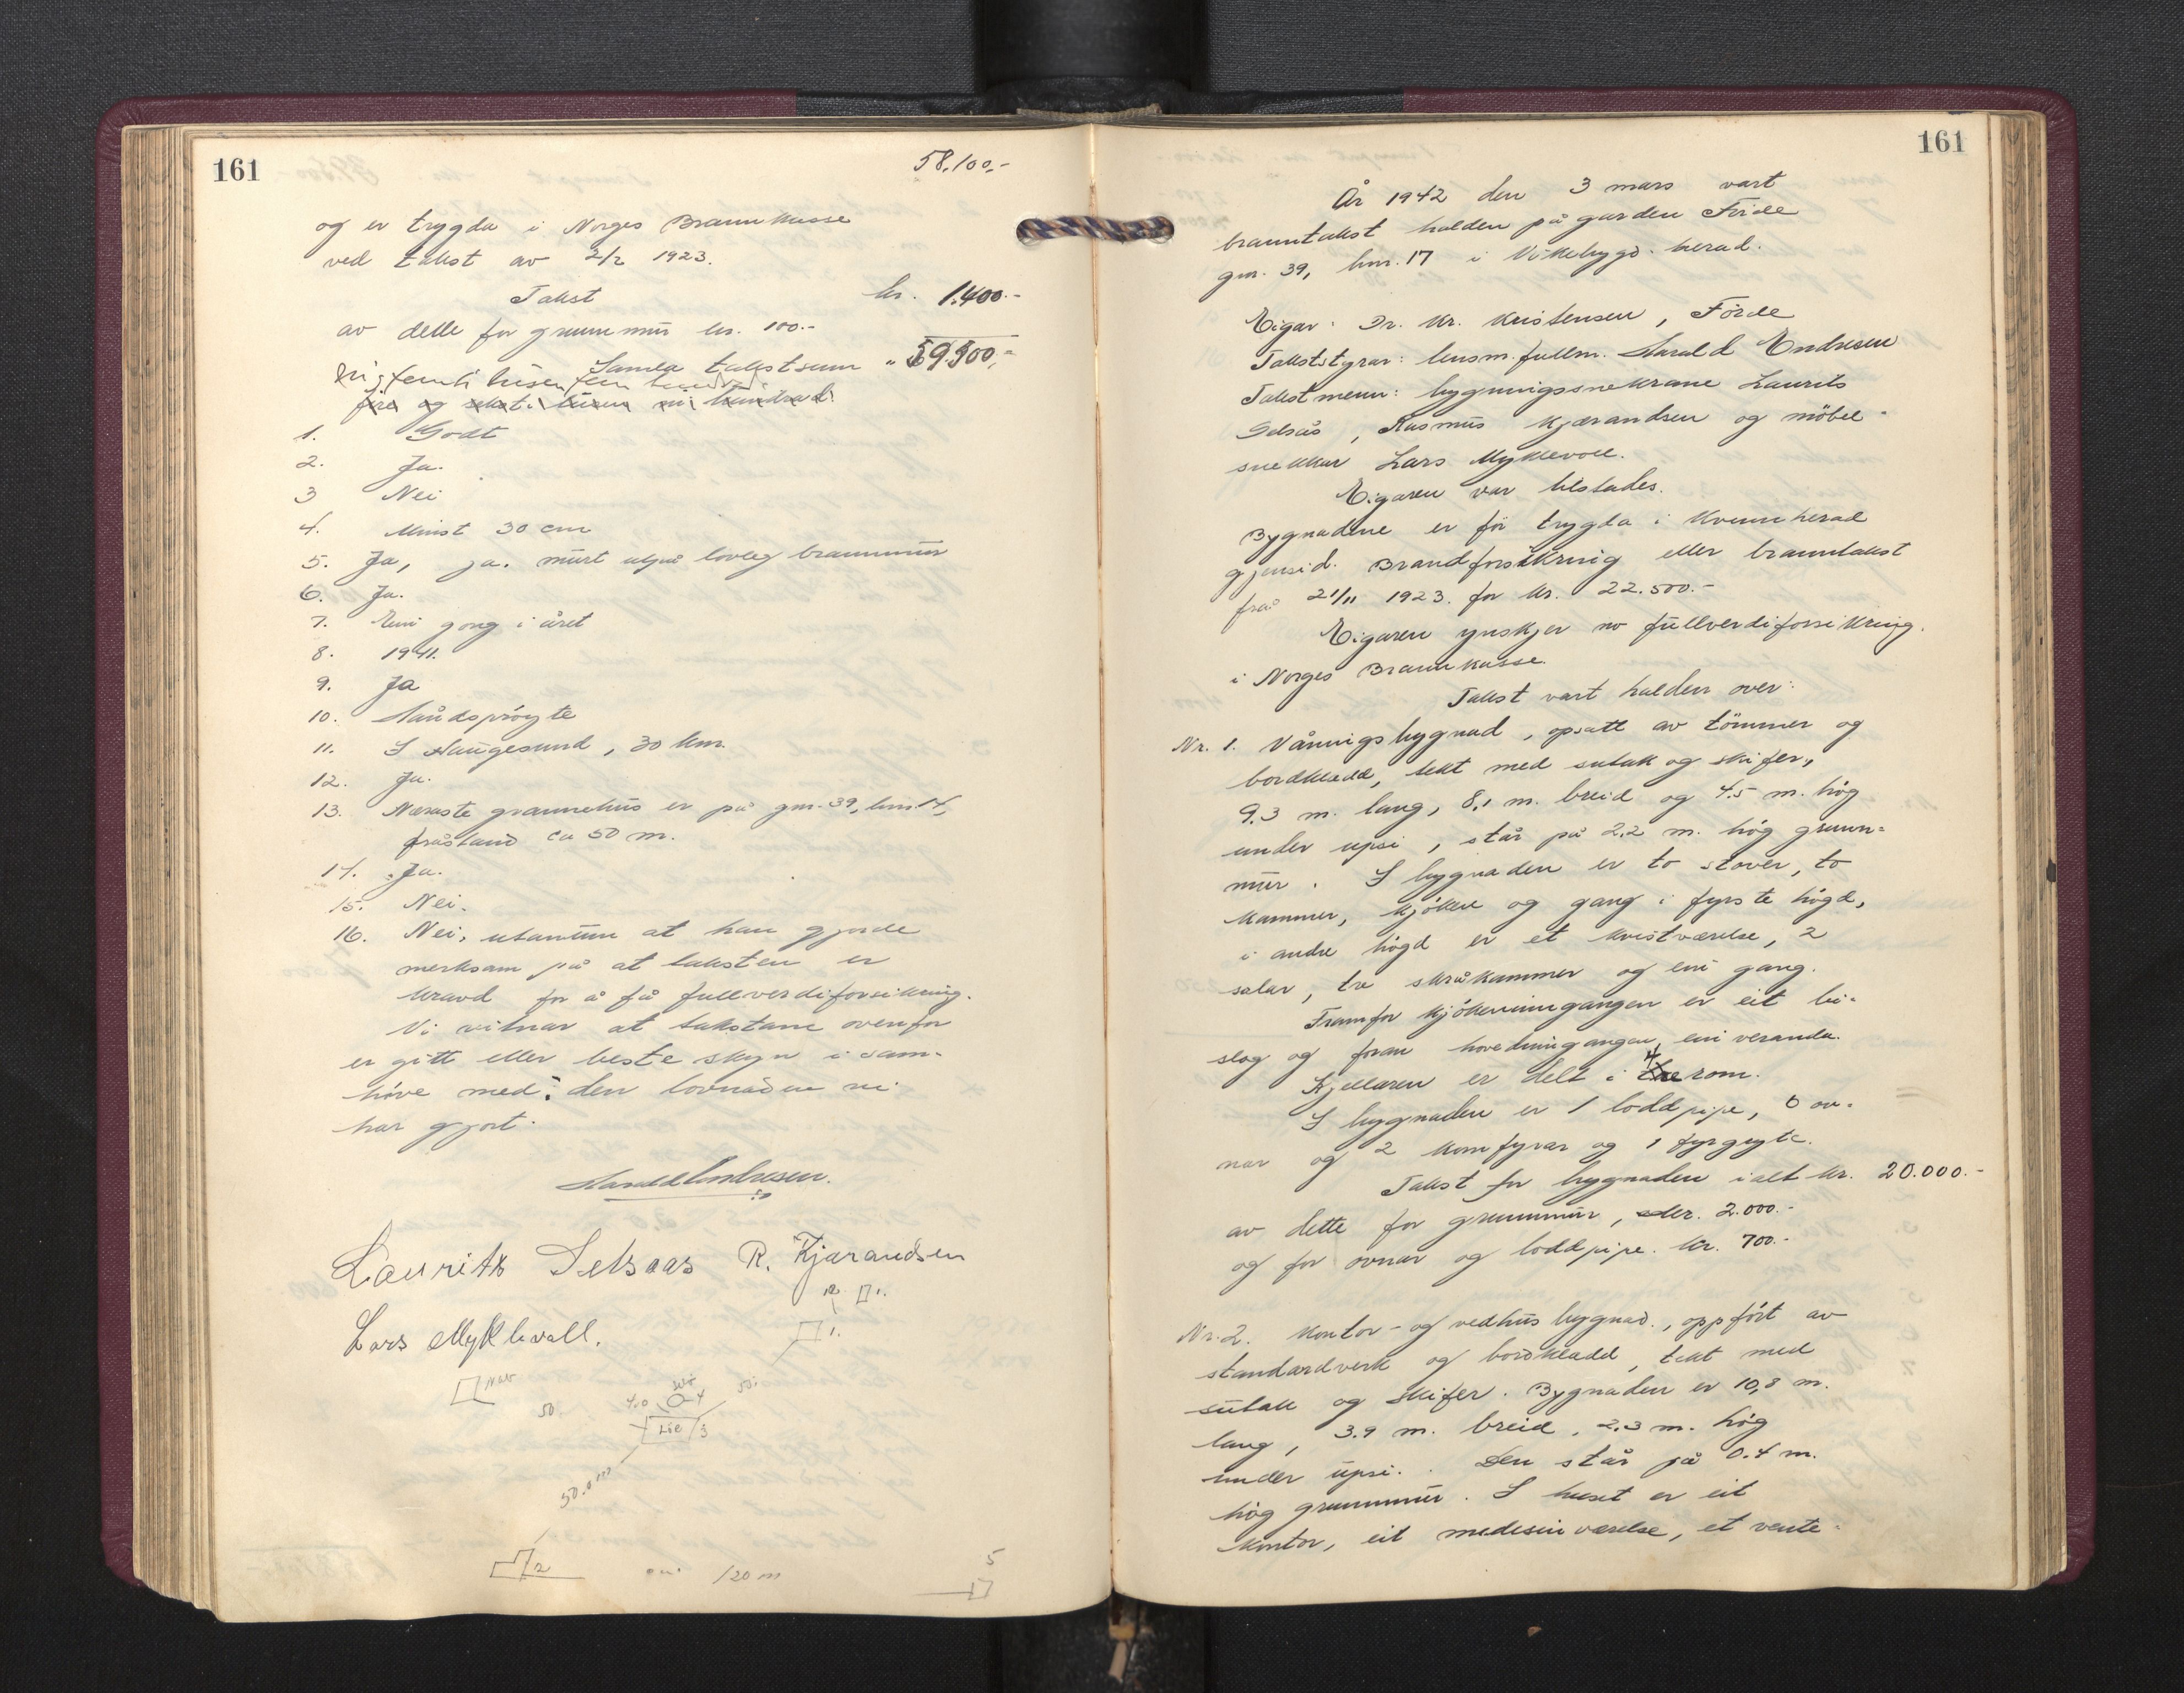 161
58.100,-
og er trygda i Norges Brannkasse
ved takst av 2/2 1923.
Takst kr. 1.400.-
av dette for grunnmur kr. 100.-
Samla takstsum " 59.500,-
ni femti tusen fem hundrad
fire og seksti tusen ni hundrad.
1. Godt
2. Ja.
3 Nei
4. Minst 30 cm
5. Ja, ja. murt utpå lovleg brannmur
6. Ja.
7. Ein gong i året
8. 1941.
9. Ja
10. Handsprøyte
11. I Haugesund, 30 km.
12. Ja.
13. Næraste grannehus er på gnr. 39, bnr. 14,
fråstand ca 50 m.
14. Ja.
15. Nei.
16. Nei, utanum at han gjorde
merksam på at taksten er
kravd for å få fullverdiforsikring.
Vi vitnar at takstane ovenfor
er gitt eller beste skyn i sam-
høve med den lovnaden vi
har gjort.
Harald Endresen.
Laurits Selsaas R. Kjærandsen
Lars Myklevoll.
1.
1.
50
4.0
4
50
3
50.0 m
2
120 m
5
161
År 1942 den 3 mars vart
branntakst halden på garden Førde
gnr. 39, bnr. 17 i Vikebygd herad.
Eigar: Dr. Kr. Kristensen, Førde
Takststyrar: lensm.fullm. Harald Endresen
Takstmenn: bygningssnekrane Laurits
Selsås, Rasmus Kjærandsen og møbel-
snekkar Lars Myklevoll.
Eigaren var tilstades.
Bygnadene er før trygda i Kvinnherad
gjensid. Brandforsikring eller branntakst
frå 21/11 1923. for kr. 22.500.-
Eigaren ynskjer no fullverdiforsikring.
i Norges Brannkasse.
Takst vart halden over:
Nr. 1. Våningsbygnad, opsatt av tømmer og
bordkledd, tekt med sutak og skifer,
9.3 m. lang, 8.1 m. breid og 4.5 m. høg
under upsi, står på 2.2 m. høg grunn-
mur. I bygnaden er to stover, to
kammer, kjøken og gang i fyrste høgd,
i andre høgd er et kvistværelse, 2
salar, tre skråkammer og ein gang.
Framfor kjøkeninngangen er eit bi-
slag og foran hovedinngangen ein veranda.
Kjellaren er delt i tre 4 rom.
I bygnaden er 1 loddpipe, 6 ov-
nar og 2 komfyrar og 1 fyrgryte.
Takst for bygnaden ialt kr. 20.000.-
av dette for grunnmur, kr. 2.000.-
og for ovnar og loddpipe. kr. 700.-
Nr. 2. Kontor- og vedhusbygnad., oppført av
standardverk og bordkledd, tekt med
sutak og skifer. Bygnaden er 10,8 m.
lang, 3.9 m. breid, 2.3 m. høg
under upsi. Den står på 0.4 m.
høg grunnmur. I huset er eit
kontor, eit medesinværelse, et vente-